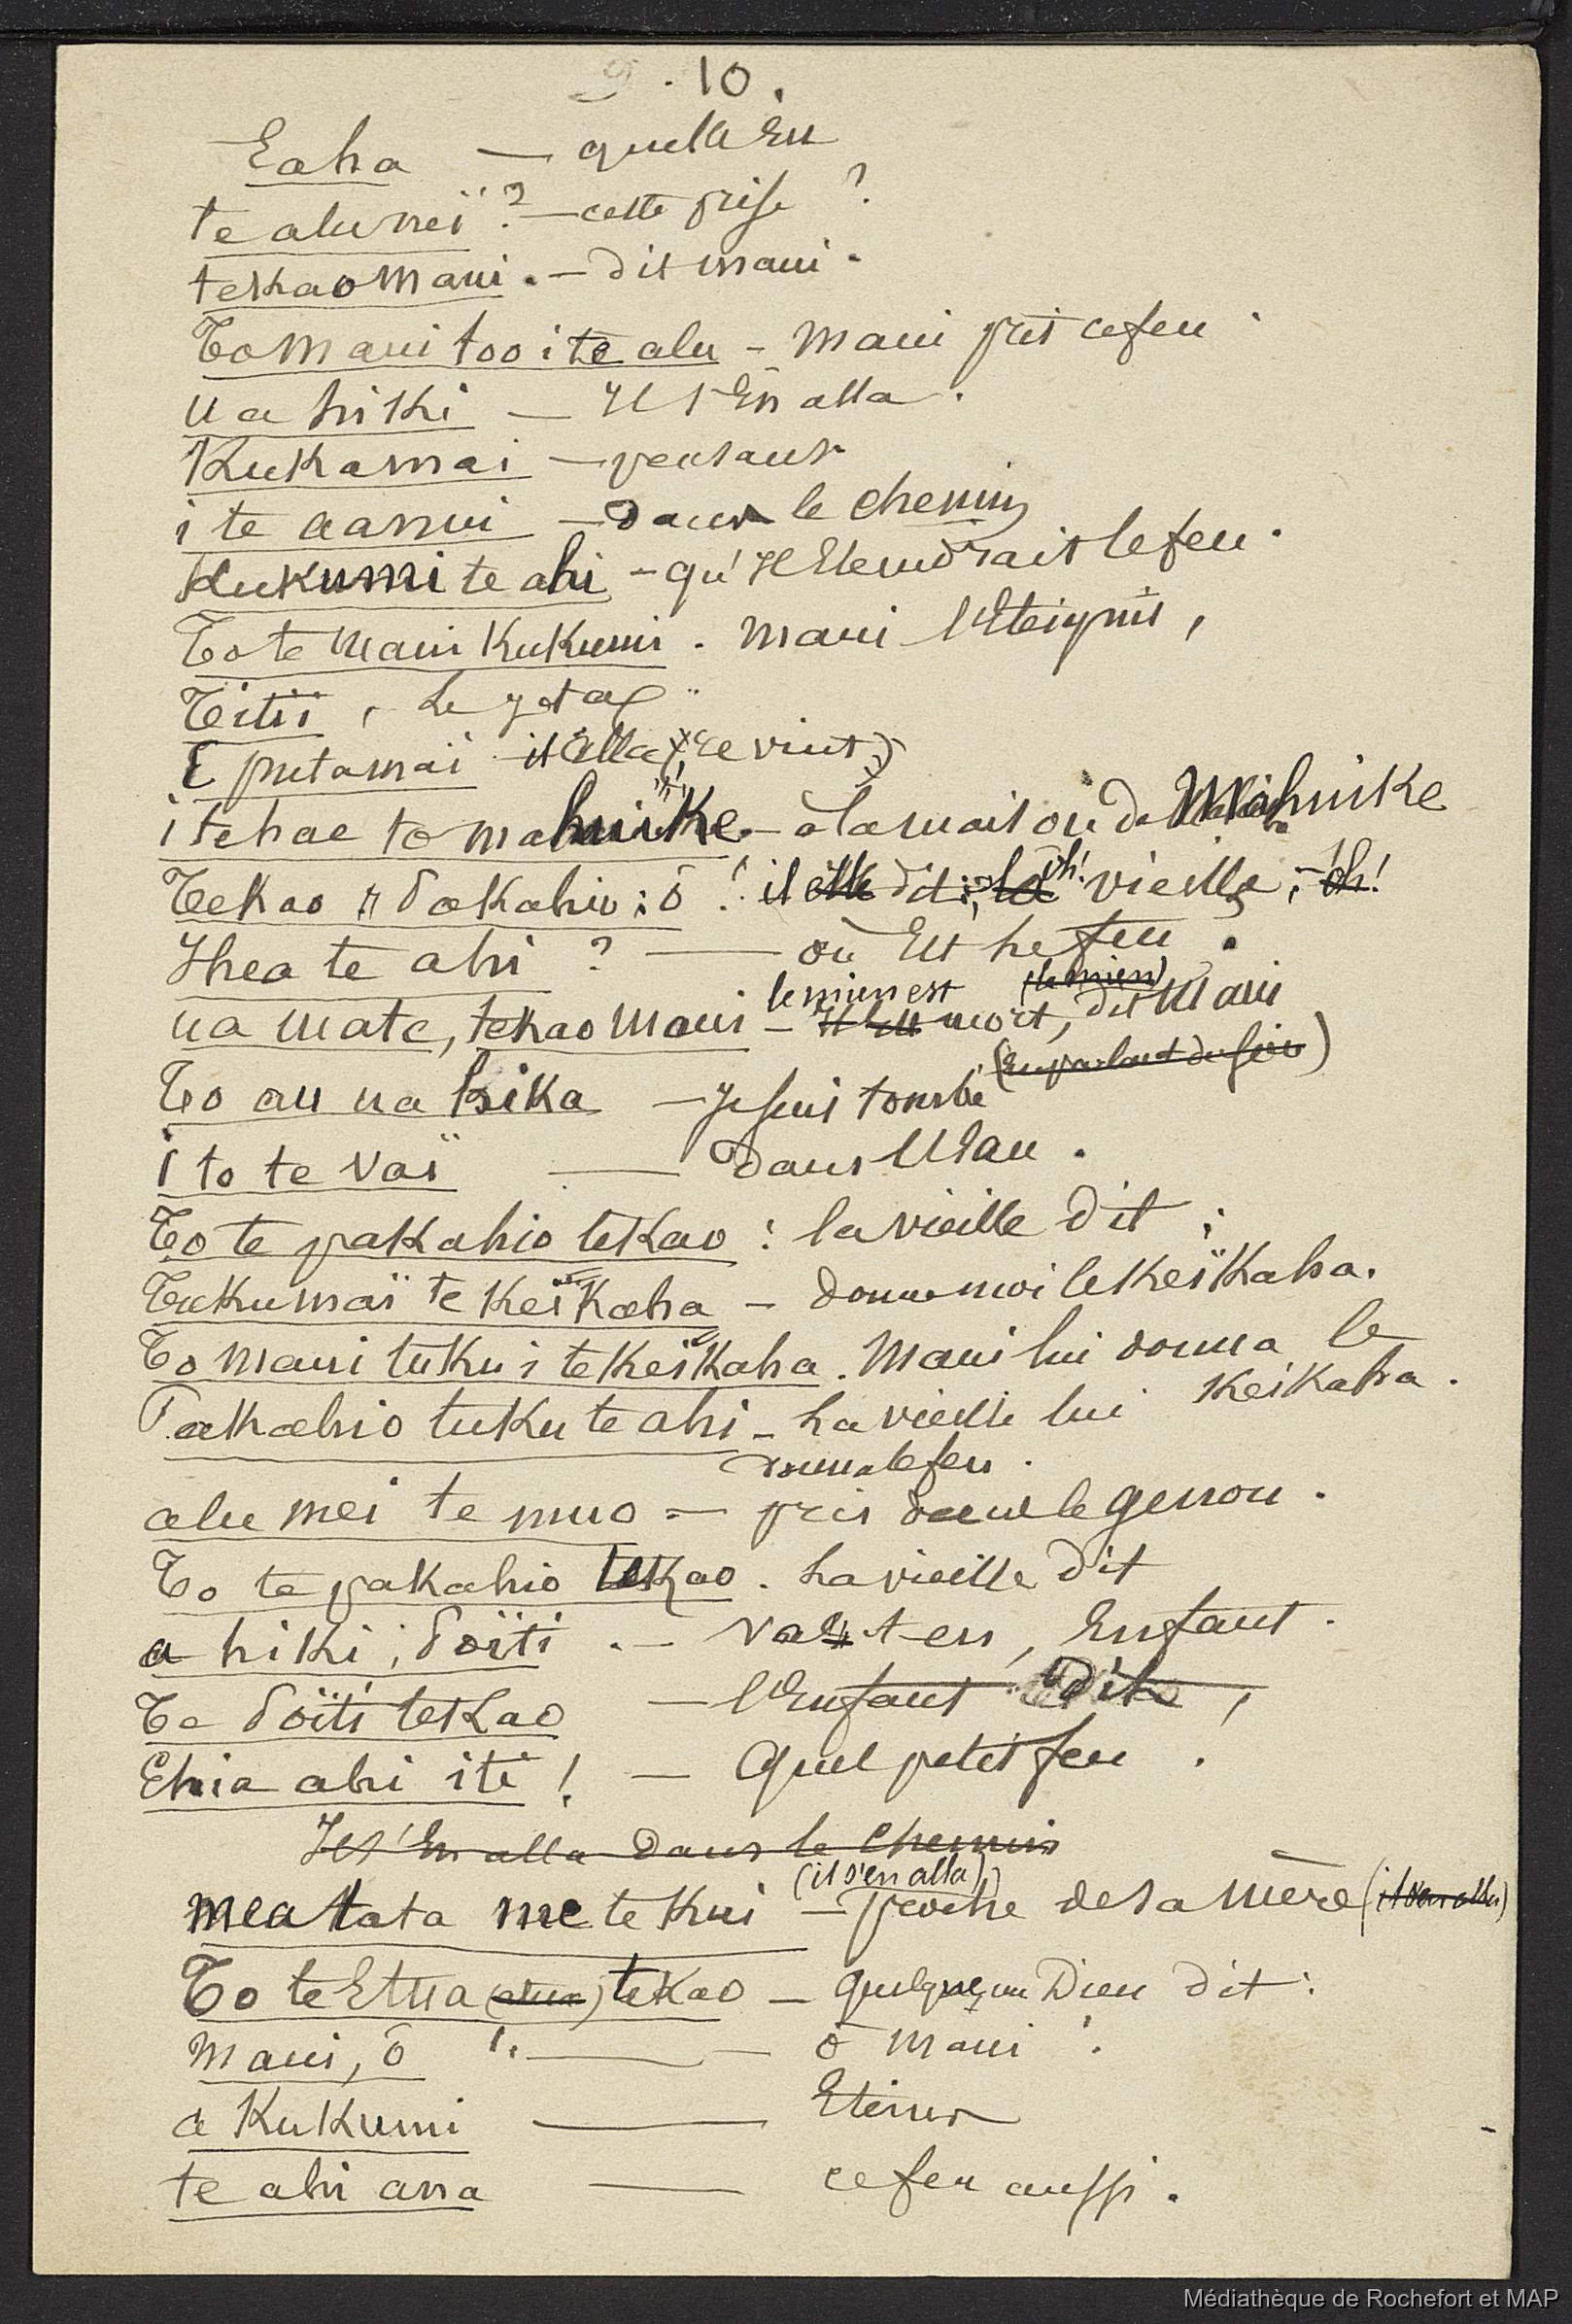 9 . 10 .
Eaha — quelle est
te alu neï ? — cette prise ?
tekao Maui . — dit maui .
To Maui too i te alu - Maui prit ce feu .
ua hiki — Il s'en alla .
Kukamai — pensant
i te aanui — dans le chemin
Kukumi te ahi - qu'il éteindrait le feu .
To te Maui Kukumi . Maui l'éteignit ,
Titii , Le jeta
E putamaï - il alla (revint)
i te hae to mahuike - à la maison de Mahuike
Tekao Pakahio : ô ! il elle dit : la oh! vieille , - oh!
Ihea te ahi ? — où est le feu .
le mien est (le mien)
ua mate , tekao Maui - Il est mort , dit Maui
(en parlant du sien)
To au ua hika — Je suis tombé
i to te Vaï — dans l'eau .
To te pakahio tekao : la vieille dit :
Tukumaï te Keïkaha — donne moi le Keïkaha .
To Maui tuku i te Keïkaha . Maui lui donna le
Keïkaha .
Pakahio tuku te ahi - La vieille lui
donna le feu .
alu mei te muo = pris dans le genou .
To te pakahio tekao . La vieille dit
a hiki ; Poïti . — Va t-en , Enfant .
Te Poïti tekao — l'Enfant dit ,
Ehia ahi iti ! — Quel petit feu .
Il s'en alla dans le chemin
(il s'en alla)
mea tata me te Kui — proche de sa mère (il s'en alla)
To te Etua tekao — quelque un Dieu dit :
Maui , ô ! — ô Maui !
a Kukumi — Eteins
te ahi ana — ce feu aussi .
Médiathèque de Rochefort et MAP